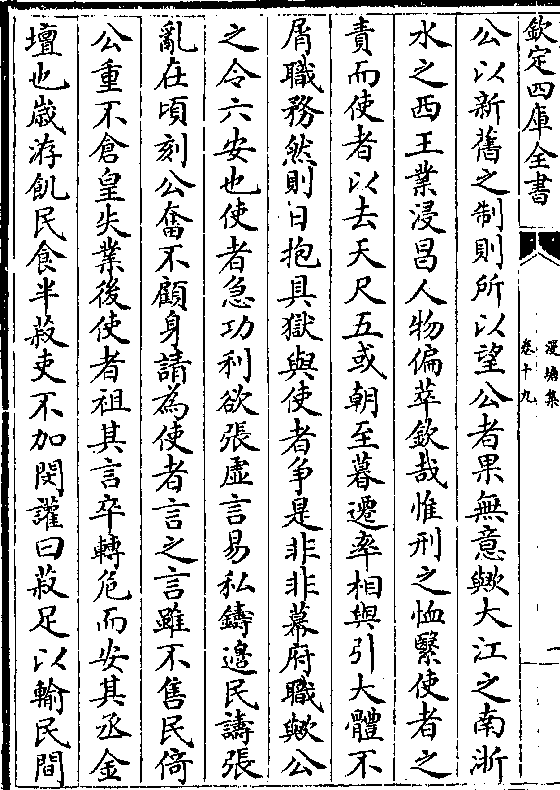 欽定四庫全書
漫塘集
卷十九
公以新舊之制則所以望公者果無意歟大江之南浙
水之西王業浸昌人物偏萃欽哉惟刑之恤繄使者之
責而使者以去天尺五或朝至暮遷率相與引大體不
屑職務然則日抱具獄與使者争是非非幕府職歟公
之令六安也使者急功利欲張虚言易私鑄邊民譸張
亂在頃刻公奮不顧身請為使者言之言雖不售民倚
公重不倉皇失業後使者祖其言卒轉危而安其丞金
壇也嵗洊飢民食半菽吏不加閔讙曰菽足以輸民間